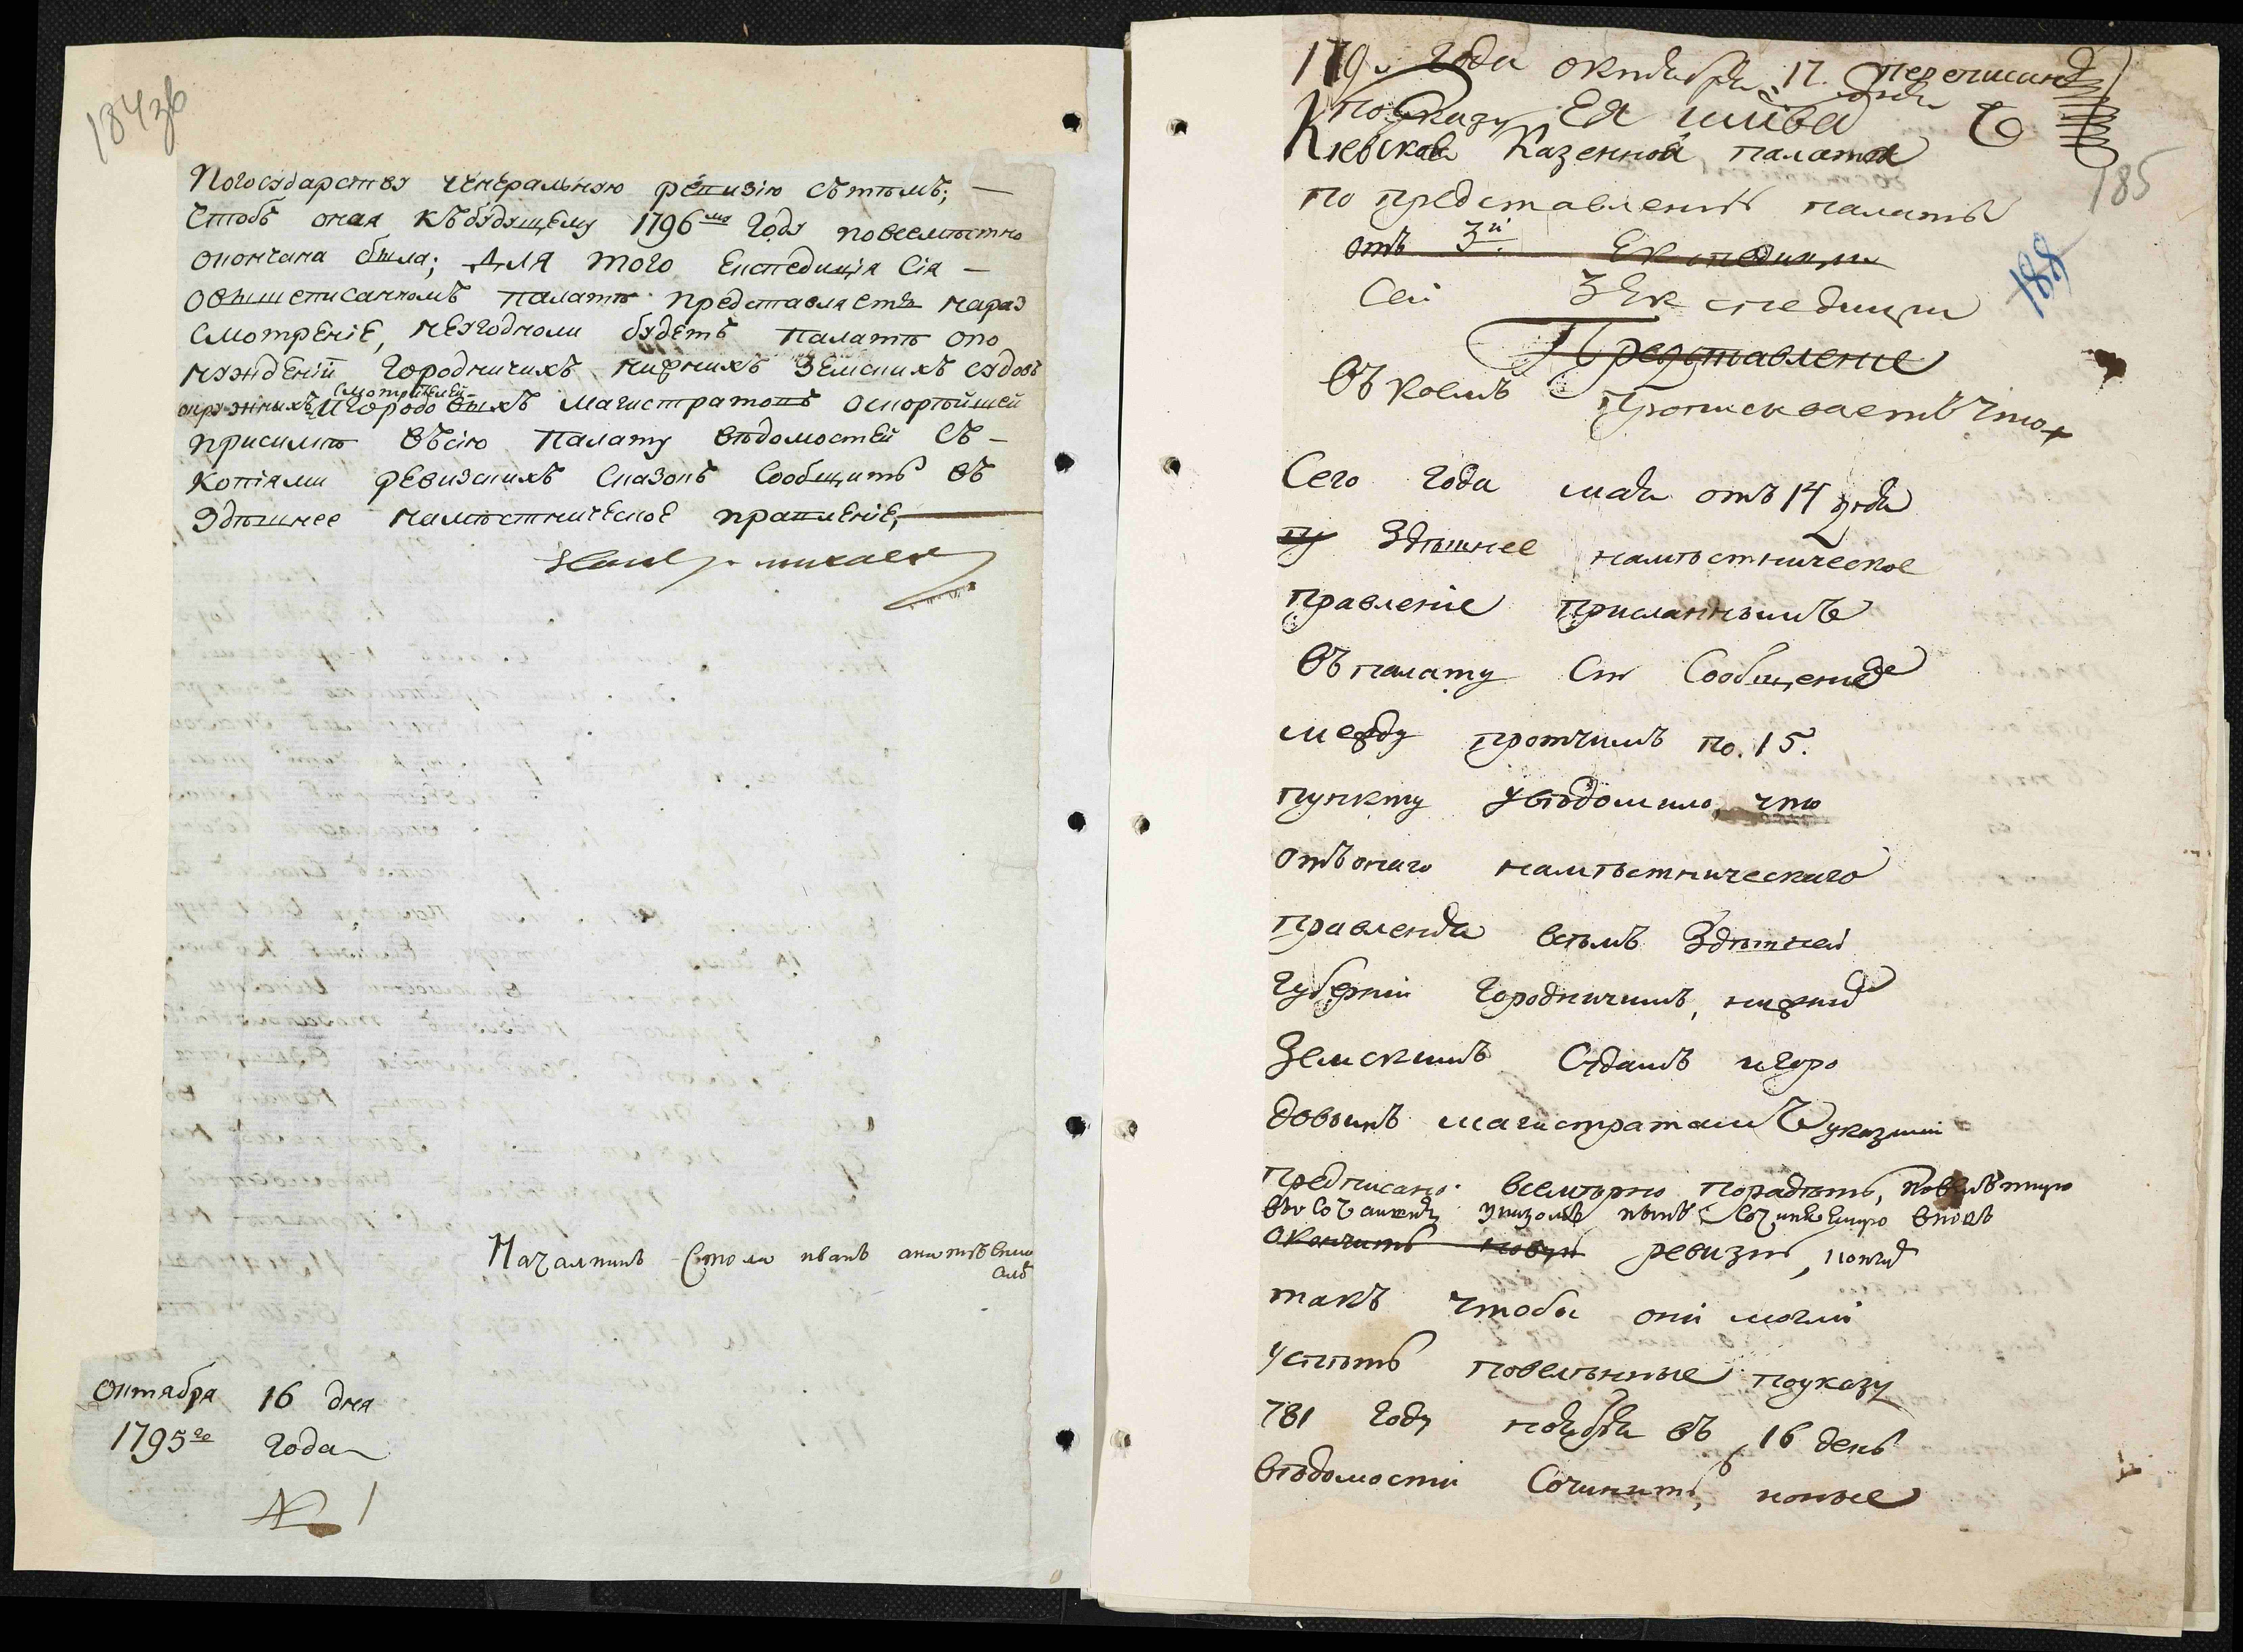 184 зв
погосударству генеральную ревизію сътѣмъ;
чтобъ оная къбудущему 1796му году повсемѣстно
окончана была; для того експедиція сія
овышеписанномъ палатѣ представляетъ нараз
смотреніе, неугодноли будетъ палатѣ опо
нужденіи городничихъ нижнихъ земскихъ судовъ
окружныхъ смотрителей игородовыхъ магистратовъ оскорѣйшей
присилкѣ въсію палату вѣдомостей съ
копіями ревизкихъ сказокъ сообщить въ
здѣшнее намѣстническое правленіе,
Началникъ стола иванъ
октября 16 дня
1795го года
№ 1
179 года октября 17. дня переписано
по указу Ея
Кіевской казенной палатѣ
185
по представленію палатѣ
188
отъ 3й Експедиции
сей 3 Експедиции
Представление
въ коемъ прописиваетъ что
Сего года мая отъ 14 дня
Здѣшнее намѣстническое
правленіе присланнымъ
въ палату сію сообщением
между протчимъ по. 15.
пункту увѣдомило, что
отъ онаго намѣстническаго
правления всѣмъ здѣшней
губерніи городничимъ, нижним
земскимъ судамъ игоро
довимъ магистратамъ указами
предписано всемѣрно порадѣть, повелѣнную
окончить новую ревизію,
такъ чтобы они могли
успѣть повелѣнные по указу
781 году ноября въ 16 день
вѣдомости сочинить, кои